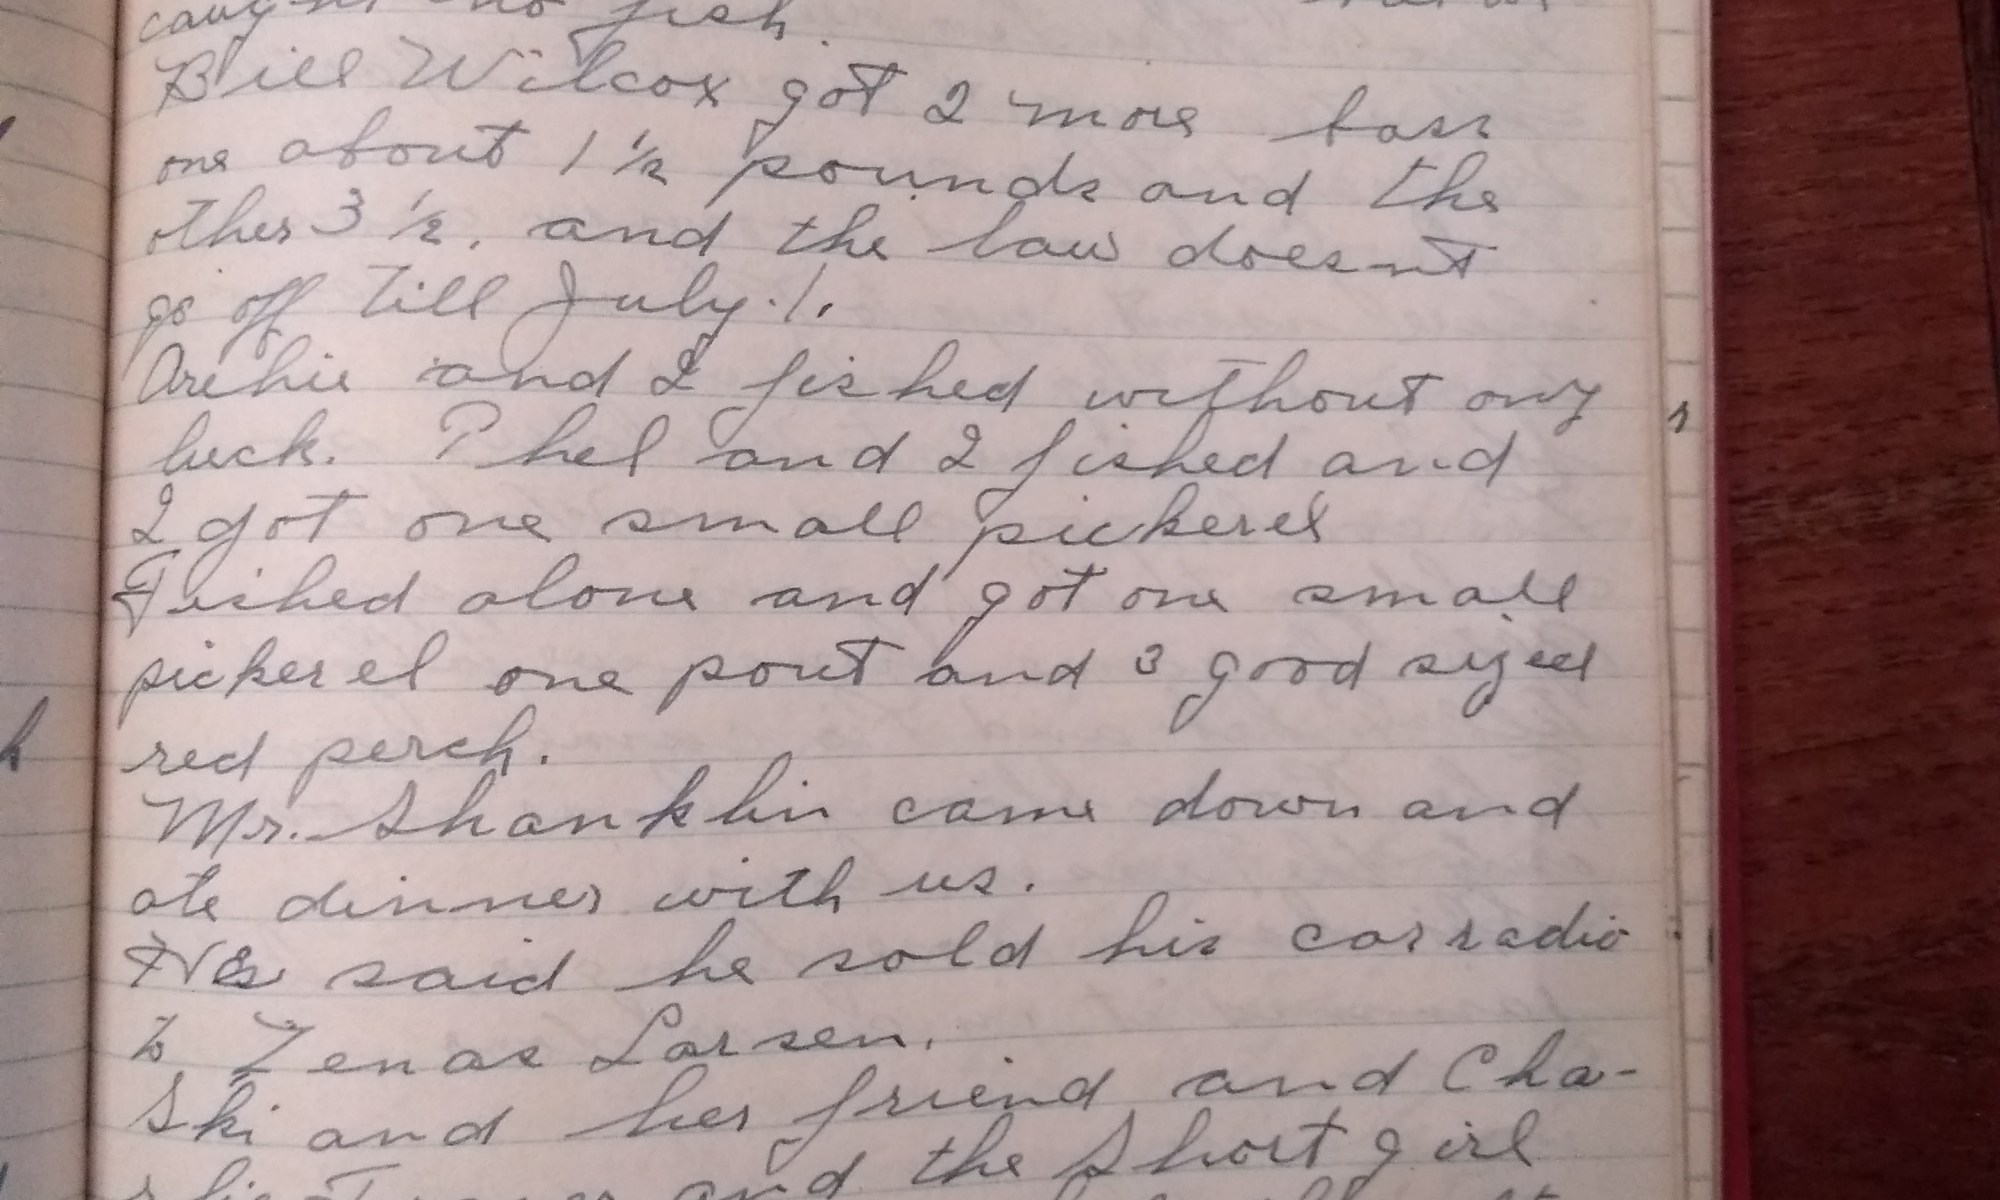 caught no fish.
Bill Wilcox got 2 more bass
one about 1 1/2 pounds and the
other 3 1/2. and the law doesnt
go off till July 1.
Archie and I fished without any
luck. Phel and I fished and
I got one small pickerel
Fished alone and got one small
pickerel one pout and 3 good sized
red perch.
Mr. Shanklin came down and
ate dinner with us.
He said he sold his car radio
to Zenas Larsen.
Ski and her friend and Cha-
and the Short girl